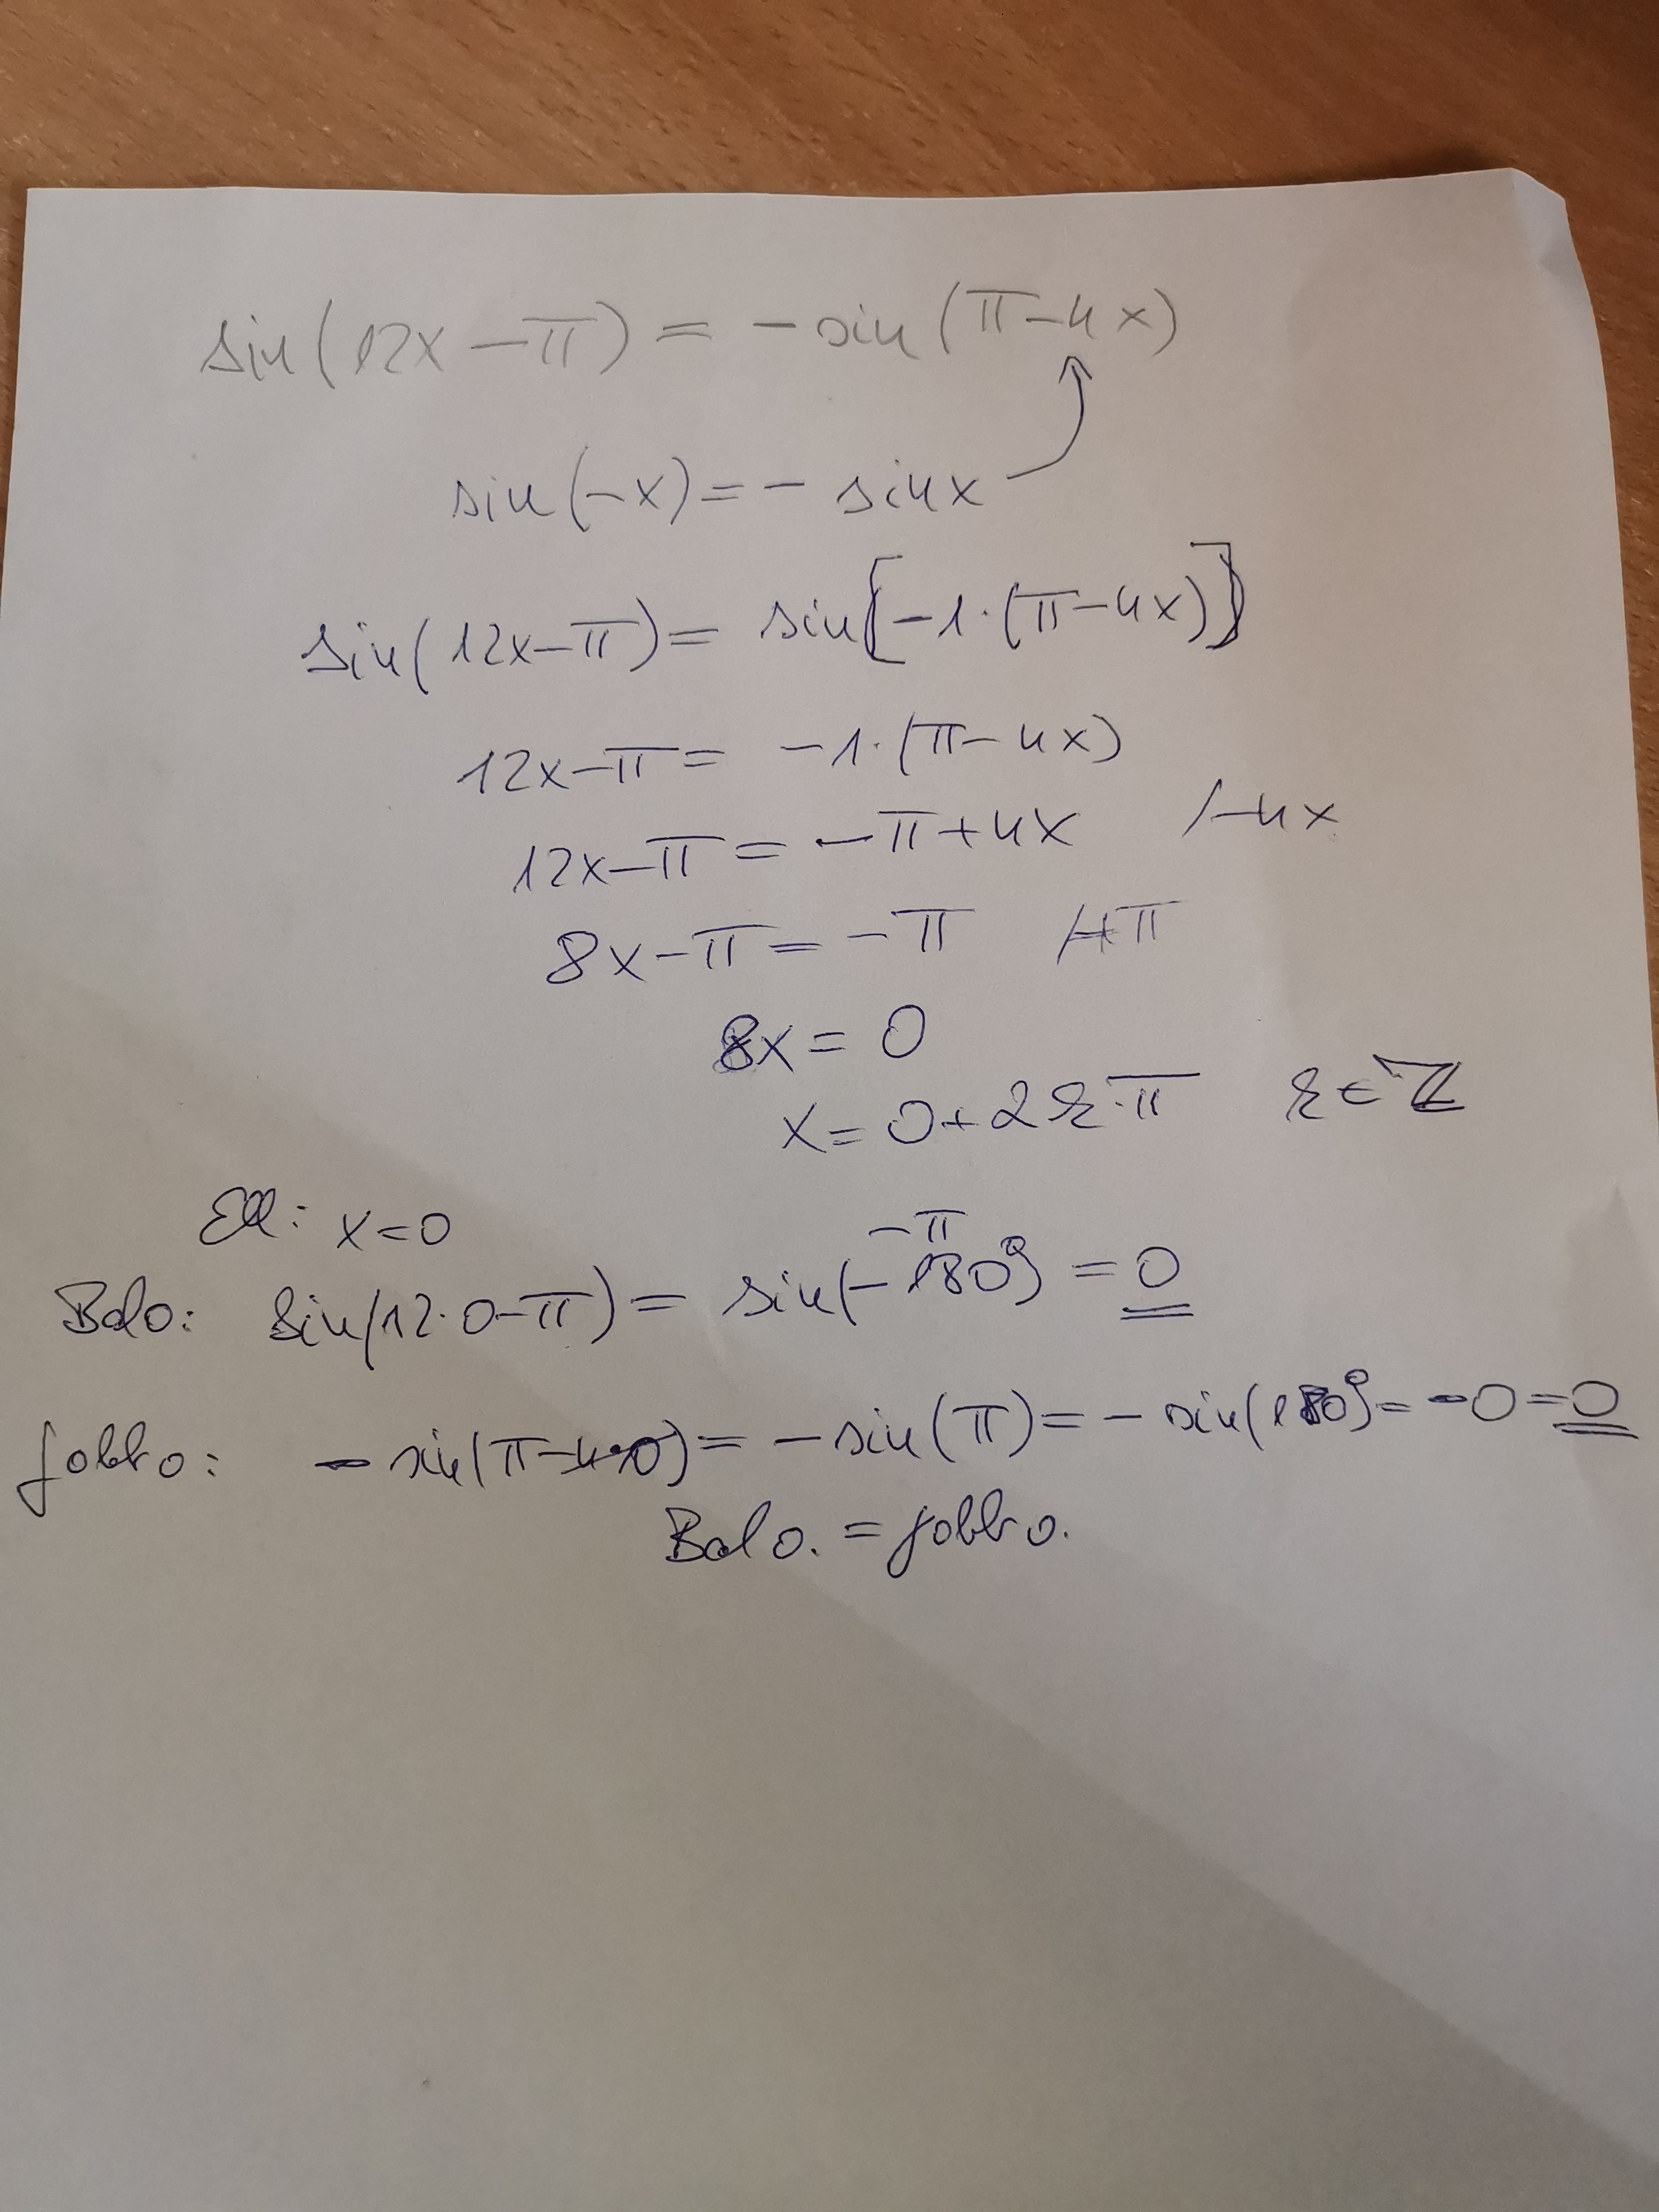 sin(12x-π) = -sin(π-4x)
sin(-x) = - sin x
sin(12x-π) = sin[-1·(π-4x)]
12x-π = -1·(π-4x)
12x-π = -π+4x /-4x
8x-π = -π /+π
8x = 0
x = 0+2k·π k∈ℤ
Ell: x=0
-π
Bal o: sin(12·0-π) = sin(-180°) = 0
Jobb o: -sin(π-4·0) = -sin(π) = -sin(180°) = -0 = 0
Bal o. = Jobb o.